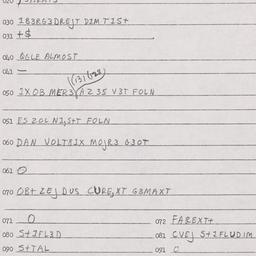 030 1B3RG3DREJT DIM T1S+
031 +$
040 QGLE ALMOST
041 —
050 JXOB MER3 A235 V3T FOLN
051 ES ZOL NJ,S+T FOLN
060 DAN VOLTRIX MOJR3 630T
061 O
070 OB+ ZEJ DUS CURE,XT GBMAXT
071 O
072 FABEXT+
080 S+2FL3D
081 CVEJ S+2FLUDIM
090 S+TAL
091 C